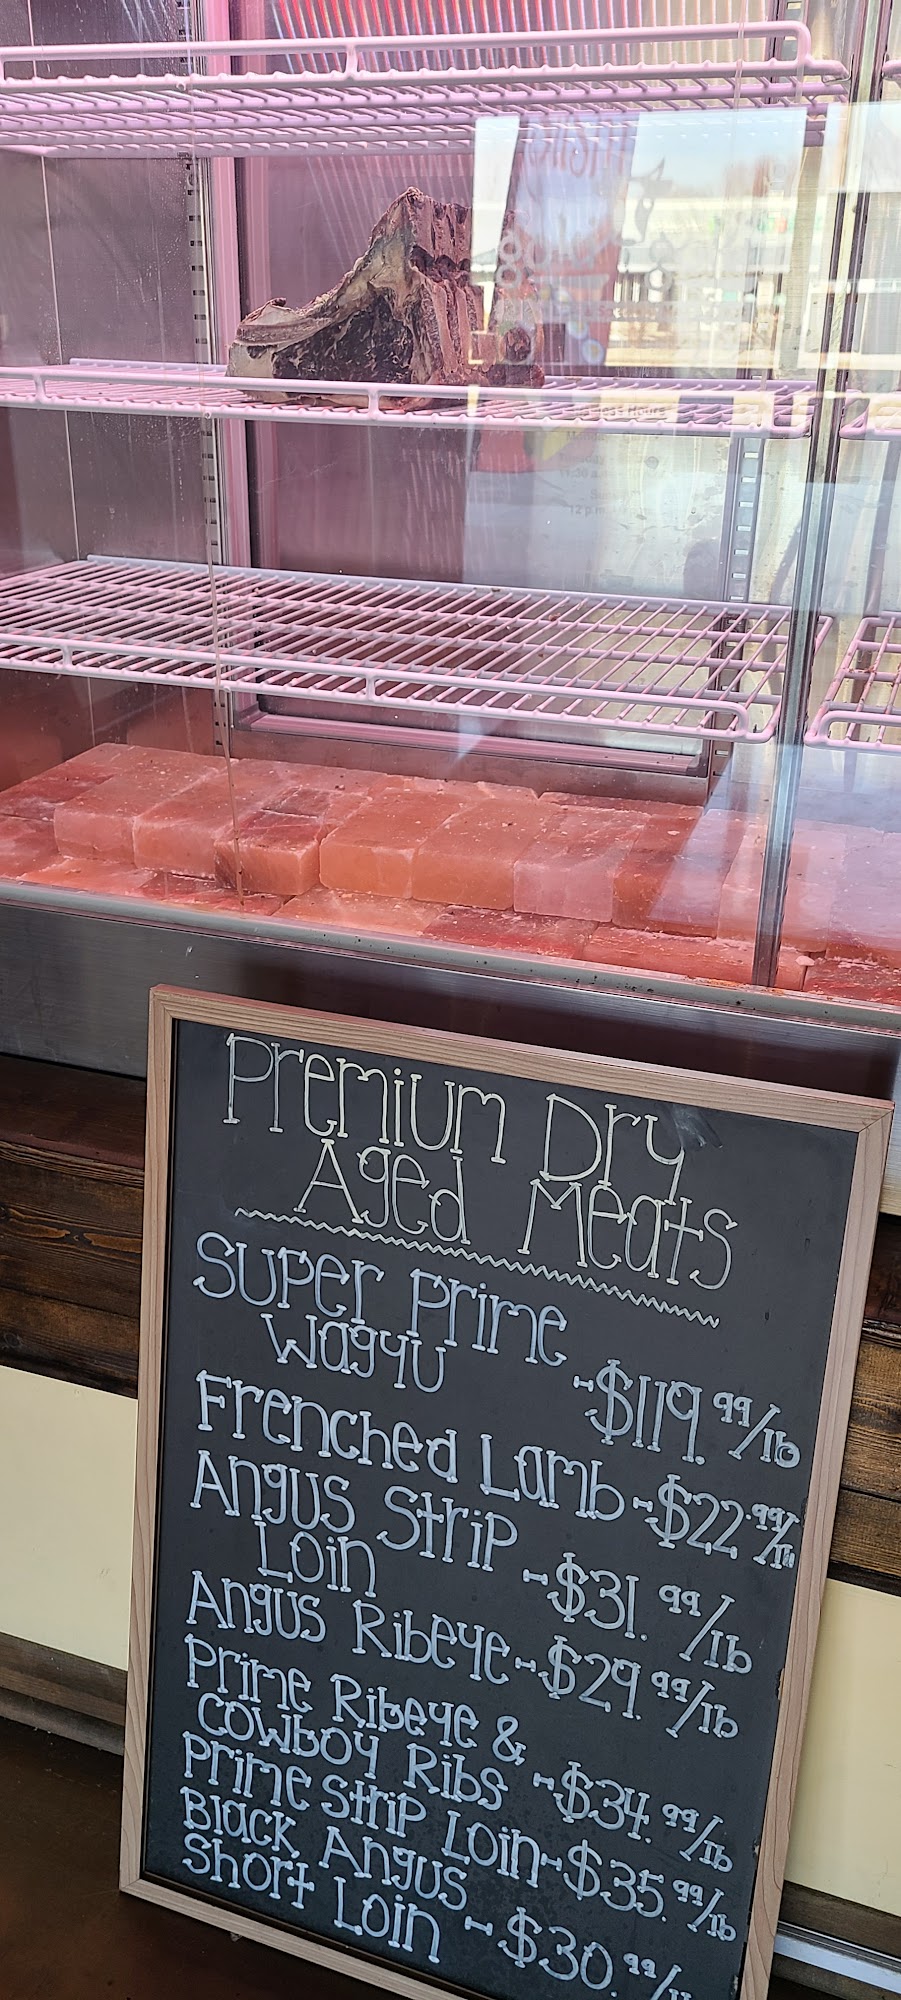 Premium Dry
Aged Meats
Super Prime
Wagyu -$119.99/lb
Frenched Lamb-$22.99/lb
Angus Strip
Loin -$31.99/lb
Angus Ribeye-$29.99/lb
Prime Ribeye &
Cowboy Ribs -$34.99/lb
Prime Strip Loin-$35.99/lb
Black Angus
Short Loin -$30.99/